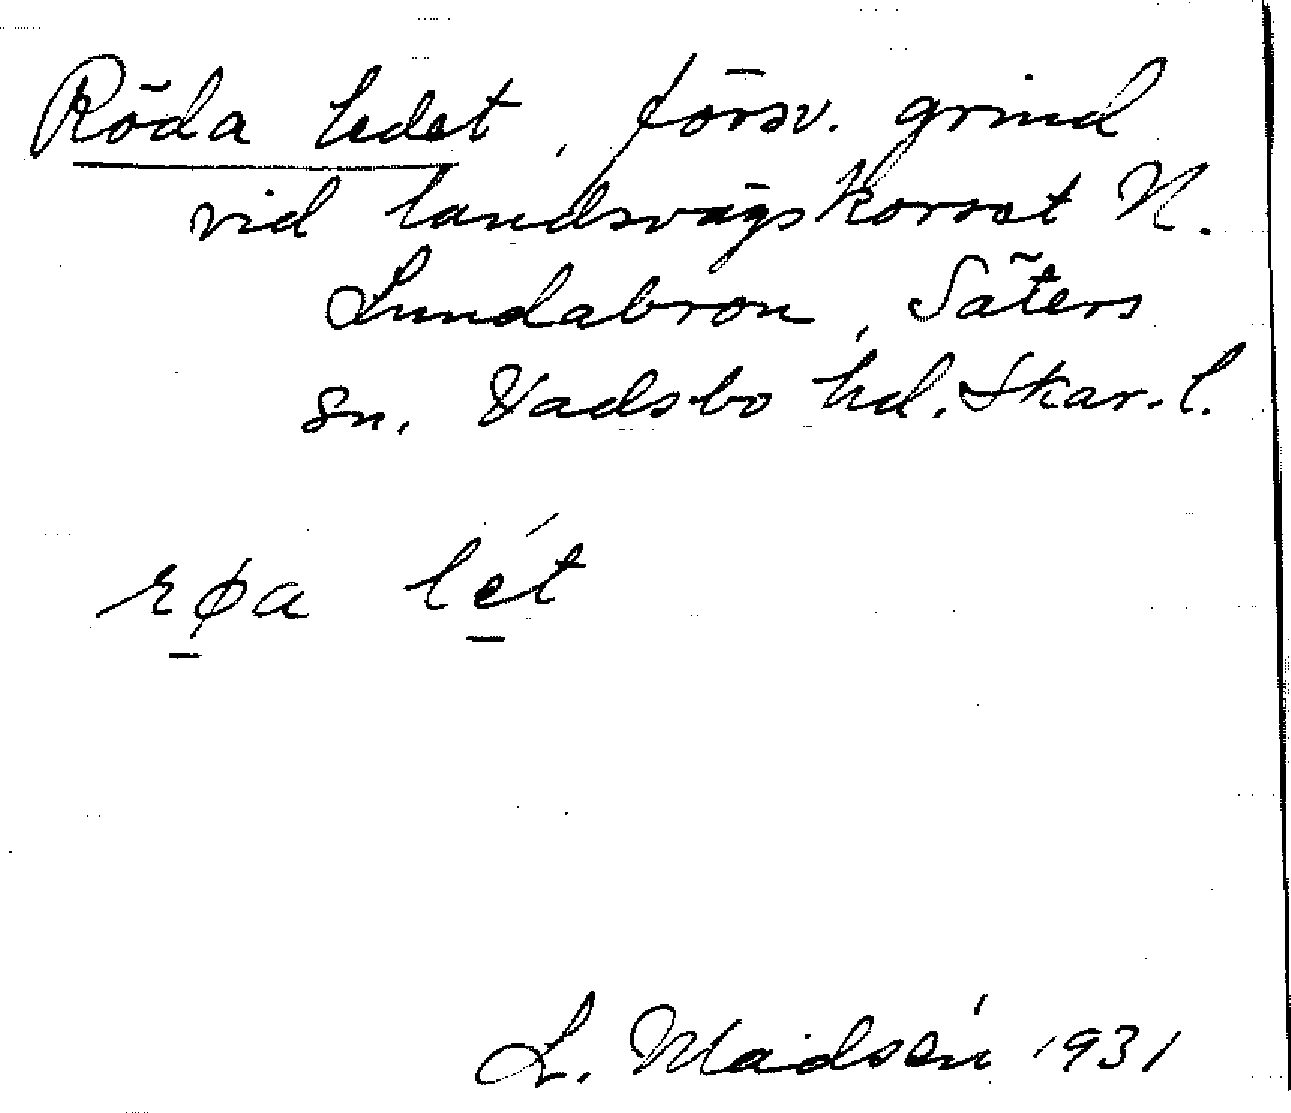 Röda ledet, försv. grind
vid landsvägskorset N.
Lundabron, Säters
sn. Vadsbo hd. Skar. l.
røa lét
L. Madsén 1931